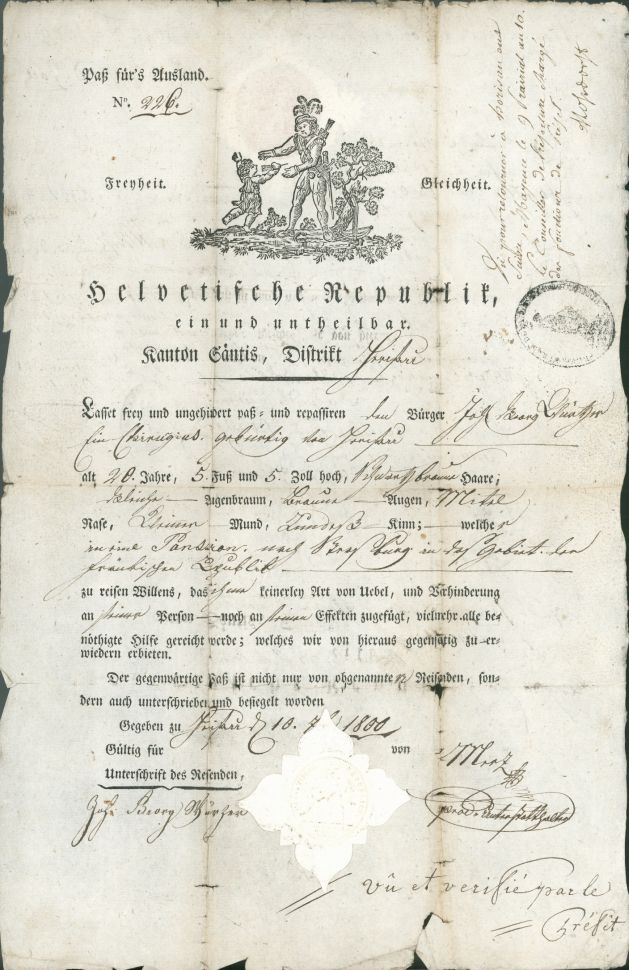 Paß für's Ausland.
No. 226.
Freyheit. Gleichheit.
Helvetische Republik,
ein und untheilbar.
Kanton Säntis, Distrikt Herisau
Lasset frey und ungehindert paß- und repassiren den Bürger Joh Georg
Ein Chirugius. gebürtig von Herisau
alt 20. Jahre, 5. Fuß und 5. Zoll hoch, Schwartzbraune Haare;
Gleiche Augenbraum, Braune Augen, Mitel
Nase, Kleiner Mund, Rundes Kinn; welcher
in eine Pension. nach Strasburg in das Gebiet der
Fränkischen Republik
zu reisen Willens, das ihme keinerley Art von Uebel, und Verhinderung
an seiner Person noch an seinen Effekten zugefügt, vielmehr alle be-
nöthigte Hilfe gereicht werde; welches wir von hieraus gegensätig zu er-
wiedern erbieten.
Der gegenwärtige Paß ist nicht nur von obgenannten Reisenden, son-
dern auch unterschrieben und besiegelt worden
Gegeben zu Herisau d 10. 1800
Gültig für von Merz
Unterschrift des Resenden,
Joh: Georg
prov. Unterstatthalter
vû et verifié par le
Préfet
Vu pour retourner à herisau en
Suisse, Mayence le 9 Prairial an 10.
le Conseiller de Préfecture chargé
des fonctions de Préfet